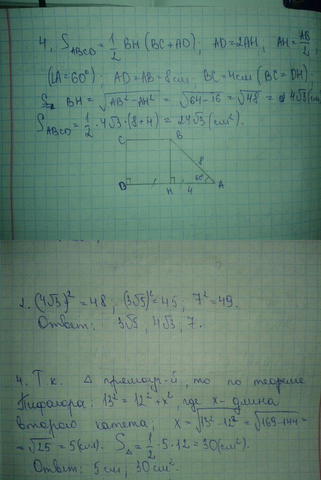 4. S_ABCD = 1/2 BH (BC + AD); AD = 2AH, AH = AB/2,
(∠A = 60°); AD = AB = 8 см, BC = 4 см (BC = DH);
BH = √(AB² - AH²) = √(64 - 16) = √48 = 4√3 (см)
S_ABCD = 1/2 · 4√3 · (8 + 4) = 24√3 (см²).
C B
8
60°
D H 4 A
2. (4√3)² = 48; (3√5)² = 45, 7² = 49.
Ответ: 3√5, 4√3, 7.
4. Т.к. △ прямоуг-й, то по теореме
Пифагора: 13² = 12² + x², где x - длина
второго катета; x = √(13² - 12²) = √(169 - 144) =
= √25 = 5 (см). S△ = 1/2 · 5 · 12 = 30 (см²).
Ответ: 5 см, 30 см².